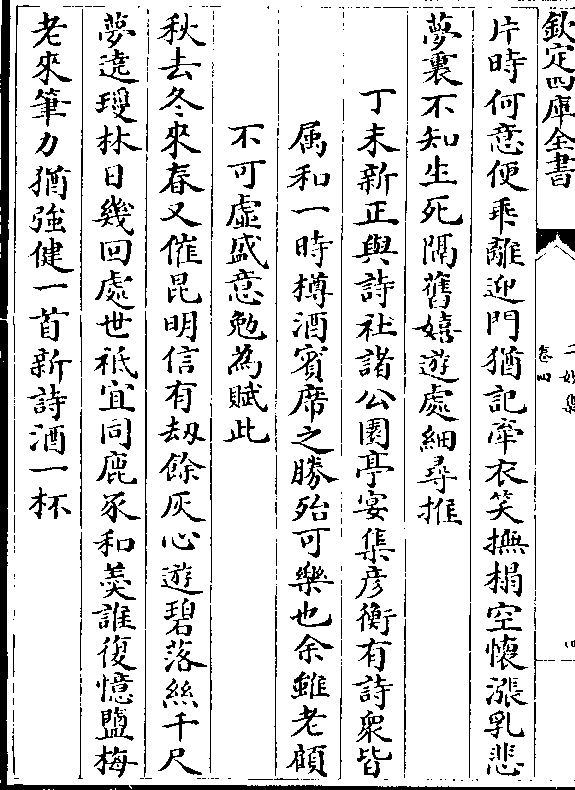 欽定四庫全書
卷四
四
片時何意便乖離迎門猶記牽衣笑撫榻空懷漲乳悲
夢裏不知生死隔舊嬉遊處細尋推
丁未新正與詩社諸公園亭宴集彦衡有詩衆皆
属和一時樽酒賓席之勝殆可樂也余雖老顧
不可虛盛意勉為賦此
秋去冬來春又催昆明信有刼餘灰心遊碧落絲千尺
夢遶瓊林日幾回處世祇宜同鹿豕和羮誰復憶鹽梅
老來筆力猶強健一首新詩酒一杯